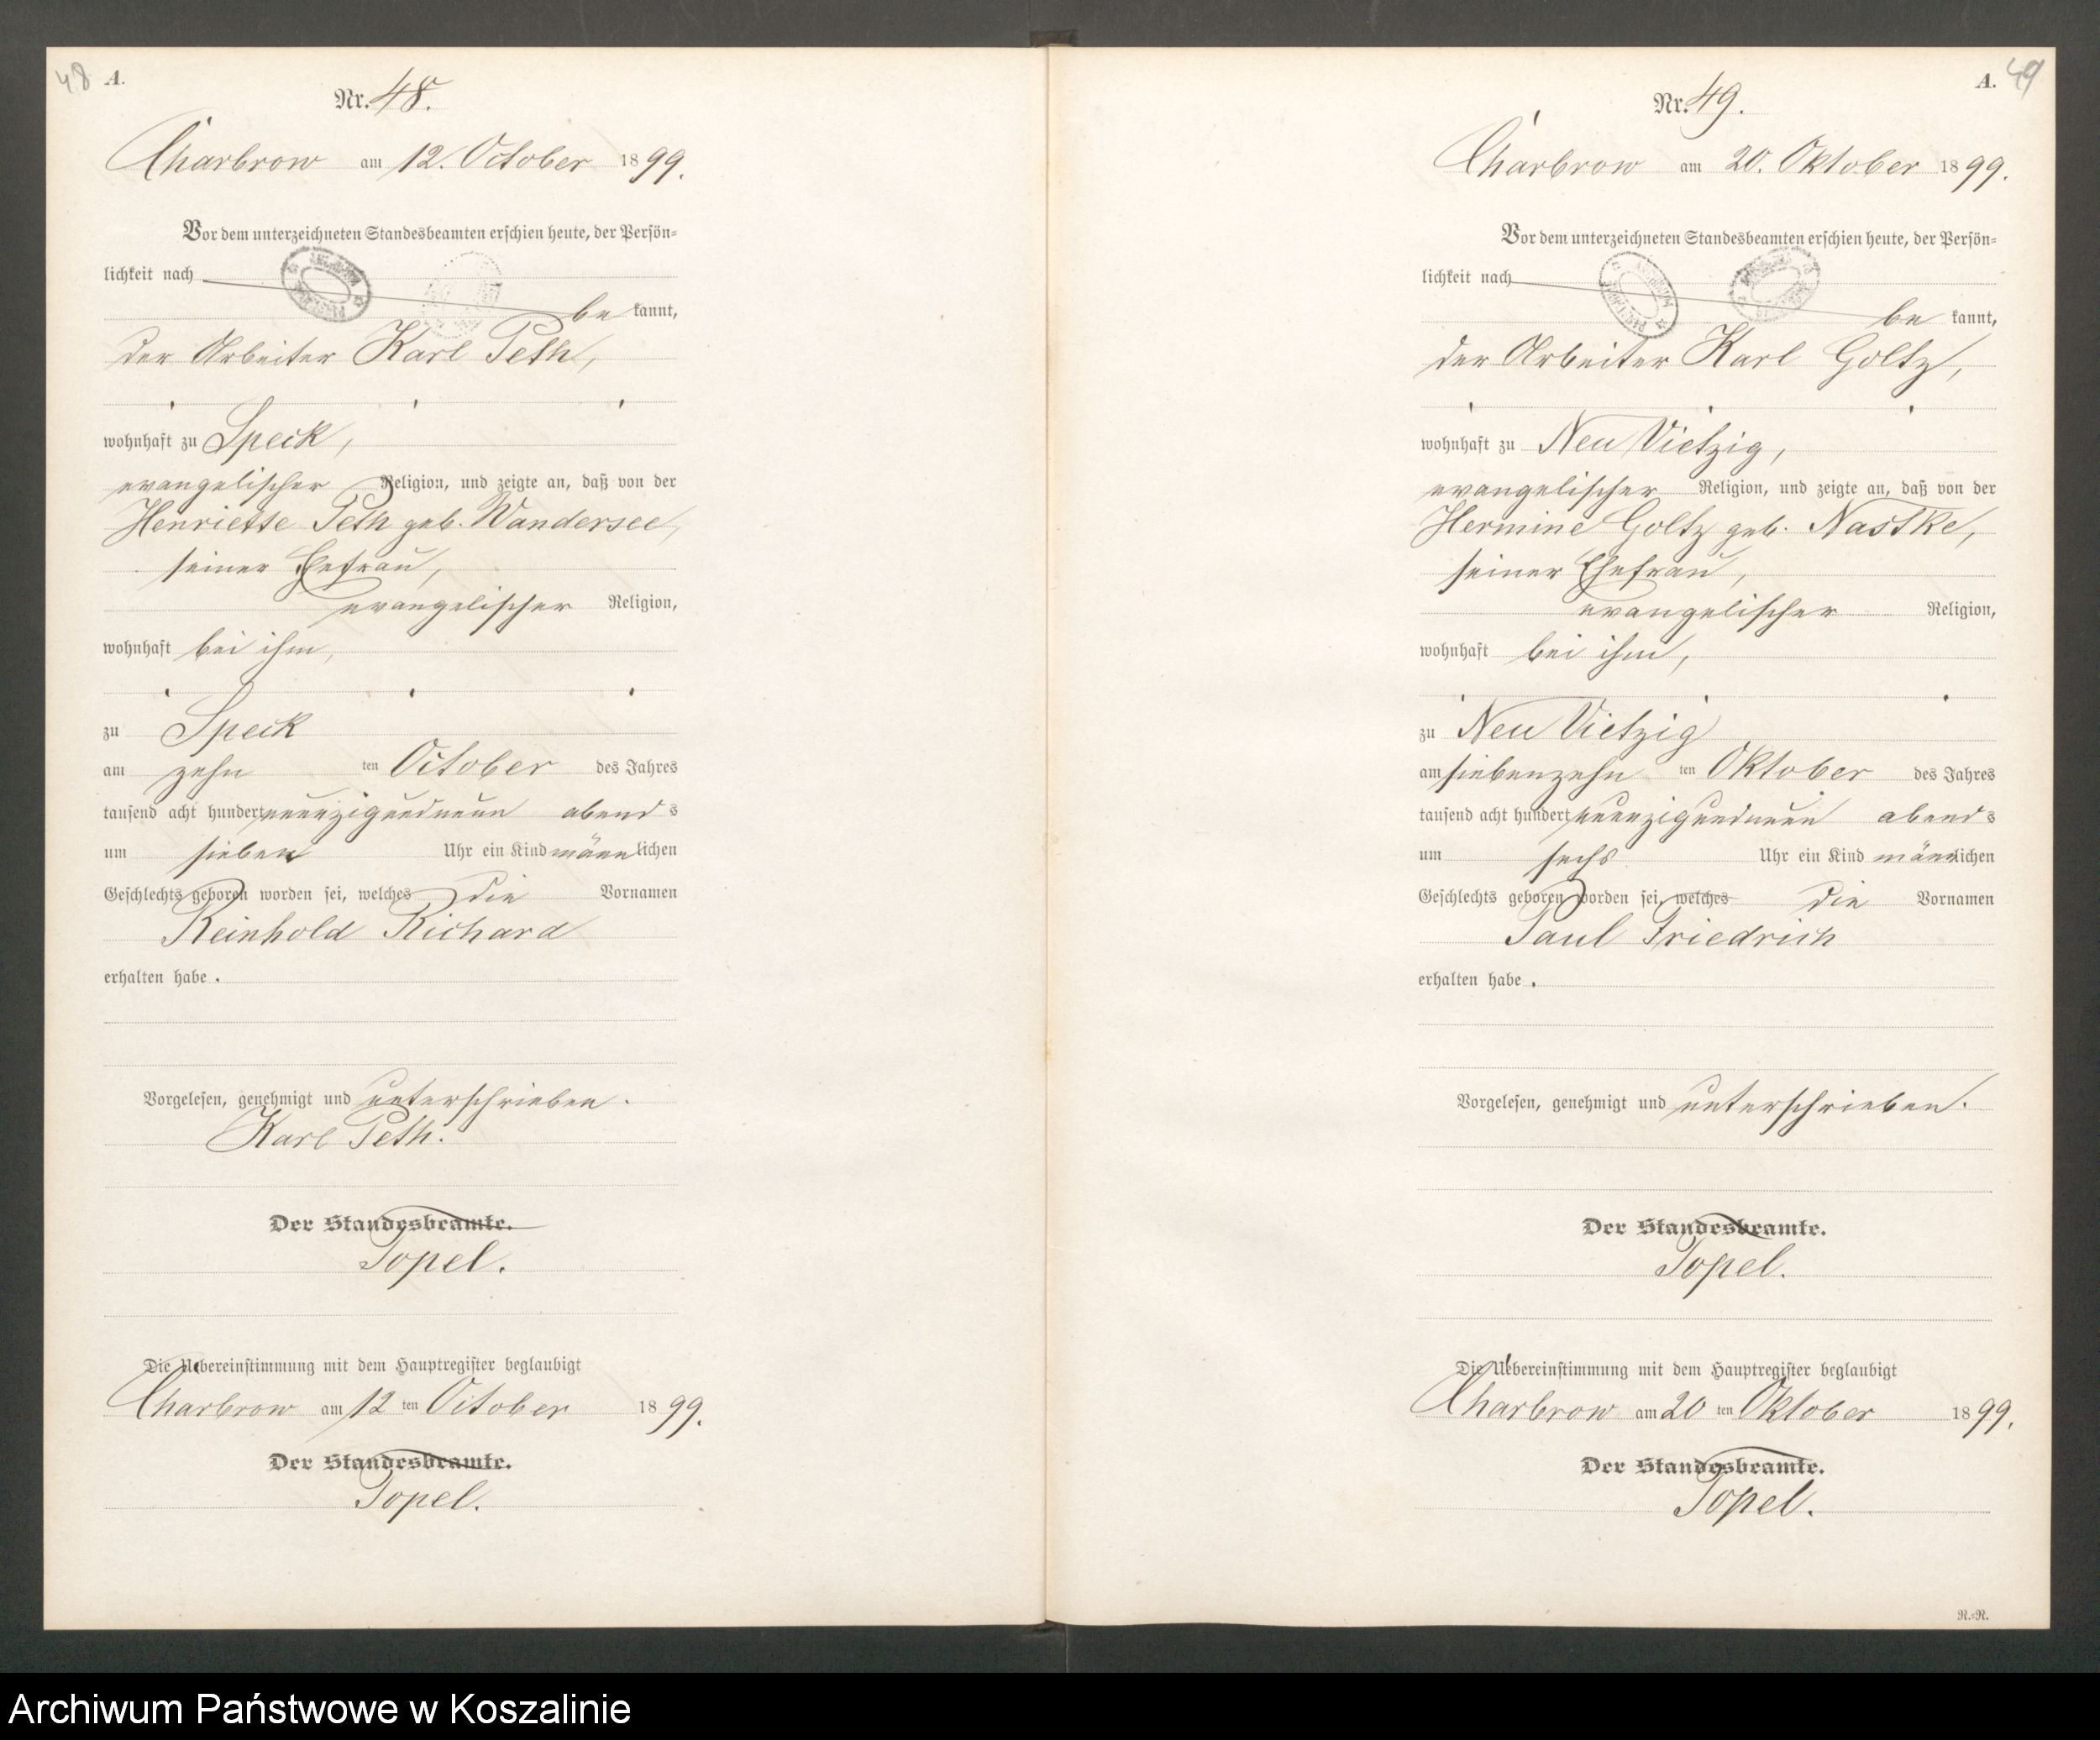 48 A.
Nr. 48.
Charbrow am 12. October 1899.
Vor dem unterzeichneten Standesbeamten erschien heute, der Persön-
lichkeit nach
be kannt,
der Arbeiter Karl Peth,
wohnhaft zu Speck,
evangelischer Religion, und zeigte an, daß von der
Henriette Peth geb. Wandersee,
seiner Ehefrau,
evangelischer Religion,
wohnhaft bei ihm,
zu Speck
am zehn ten October des Jahres
tausend acht hundert neunzigundneun abends
um sieben Uhr ein Kind männlichen
Geschlechts geboren worden sei, welches die Vornamen
Reinhold Richard
erhalten habe.
Vorgelesen, genehmigt und unterschrieben.
Karl Peth.
Der Standesbeamte.
Topel.
Die Uebereinstimmung mit dem Hauptregister beglaubigt
Charbrow am 12 ten October 1899.
Der Standesbeamte.
Topel.
A. 49
Nr. 49.
Charbrow am 20. Oktober 1899.
Vor dem unterzeichneten Standesbeamten erschien heute, der Persön-
lichkeit nach
be kannt,
der Arbeiter Karl Goltz,
wohnhaft zu Neu Vietzig,
evangelischer Religion, und zeigte an, daß von der
Hermine Goltz geb. Nastke,
seiner Ehefrau,
evangelischer Religion,
wohnhaft bei ihm,
zu Neu Vietzig
am siebenzehn ten Oktober des Jahres
tausend acht hundert neunzigundneun abends
um sechs Uhr ein Kind männlichen
Geschlechts geboren worden sei, welches die Vornamen
Paul Friedrich
erhalten habe.
Vorgelesen, genehmigt und unterschrieben.
Der Standesbeamte.
Topel.
Die Uebereinstimmung mit dem Hauptregister beglaubigt
Charbrow am 20 ten Oktober 1899.
Der Standesbeamte.
Topel.
R.=R.
Archiwum Państwowe w Koszalinie